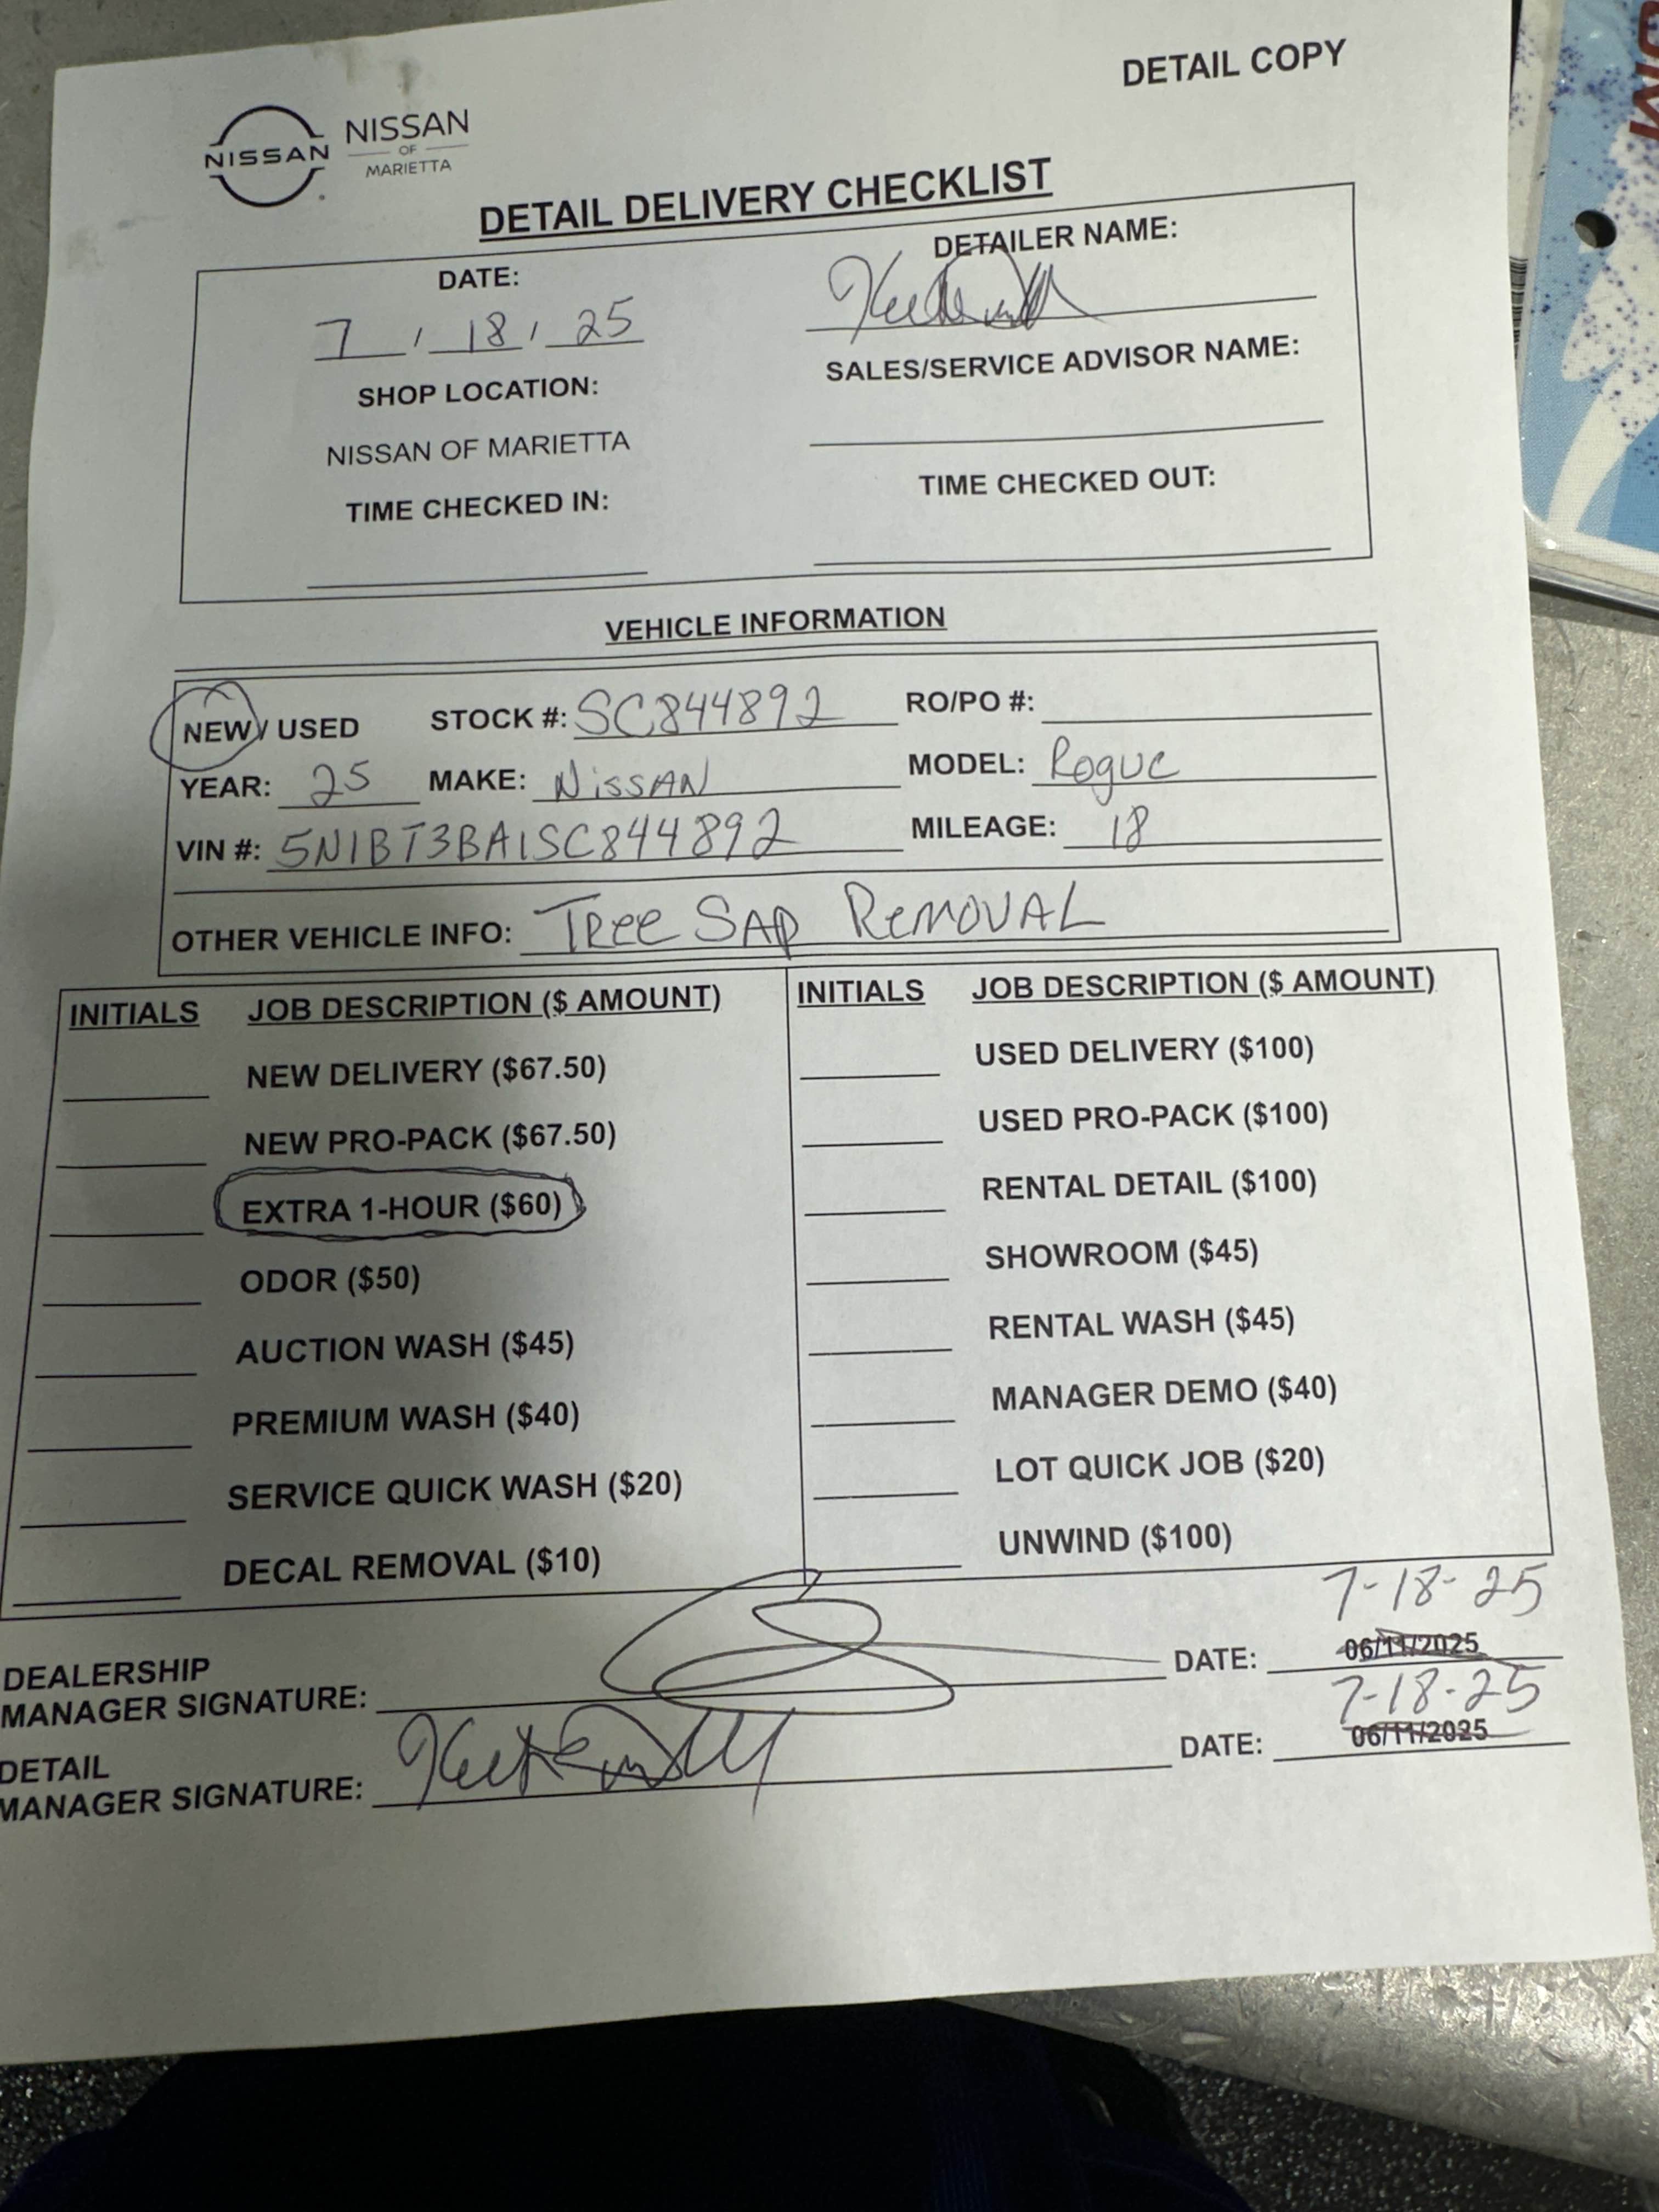 DETAIL COPY
NISSAN
NISSAN
OF
MARIETTA
DETAIL DELIVERY CHECKLIST
DATE:
7 / 18 / 25
DETAILER NAME:
SHOP LOCATION:
NISSAN OF MARIETTA
SALES/SERVICE ADVISOR NAME:
TIME CHECKED IN:
TIME CHECKED OUT:
VEHICLE INFORMATION
NEW / USED STOCK #: SC844892 RO/PO #:
YEAR: 25 MAKE: NISSAN MODEL: Rogue
VIN #: 5N1BT3BA1SC844892 MILEAGE: 18
OTHER VEHICLE INFO: TRee SAP ReMOVAL
INITIALS JOB DESCRIPTION ($ AMOUNT)
NEW DELIVERY ($67.50)
NEW PRO-PACK ($67.50)
EXTRA 1-HOUR ($60)
ODOR ($50)
AUCTION WASH ($45)
PREMIUM WASH ($40)
SERVICE QUICK WASH ($20)
DECAL REMOVAL ($10)
INITIALS JOB DESCRIPTION ($ AMOUNT)
USED DELIVERY ($100)
USED PRO-PACK ($100)
RENTAL DETAIL ($100)
SHOWROOM ($45)
RENTAL WASH ($45)
MANAGER DEMO ($40)
LOT QUICK JOB ($20)
UNWIND ($100)
7-18-25
DEALERSHIP
MANAGER SIGNATURE: DATE: 06/11/2025
7-18-25
DETAIL
MANAGER SIGNATURE: DATE: 06/11/2025